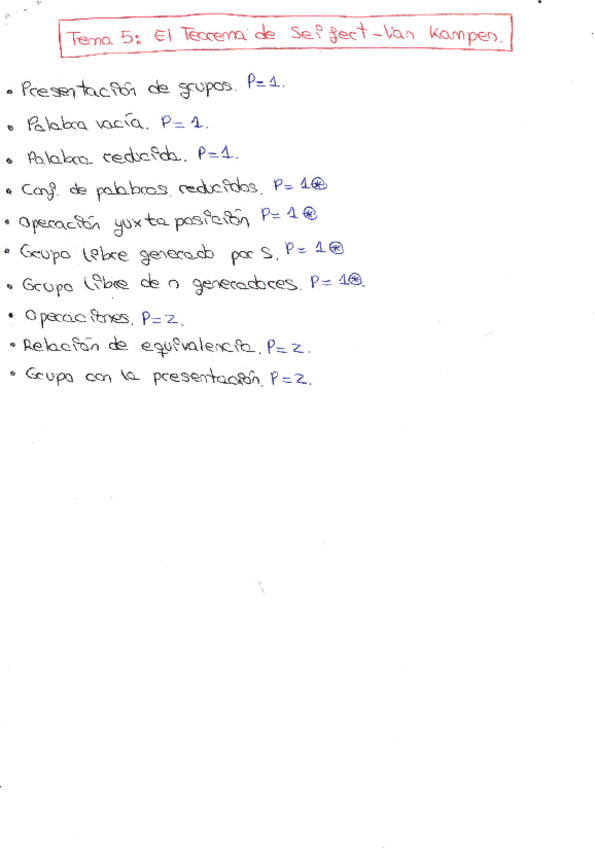 Tema 5: El Teorema de Seifert-Van Kampen.
• Presentación de grupos. P=1.
• Palabra vacía. P=1.
• Palabra reducida. P=1.
• Conj. de palabras reducidas. P=1⊛
• Operación yuxtaposición P=1⊛
• Grupo libre generado por S. P=1⊛
• Grupo libre de n generadores. P=1⊛.
• Operaciones. P=2.
• Relación de equivalencia. P=2.
• Grupo con la presentación. P=2.